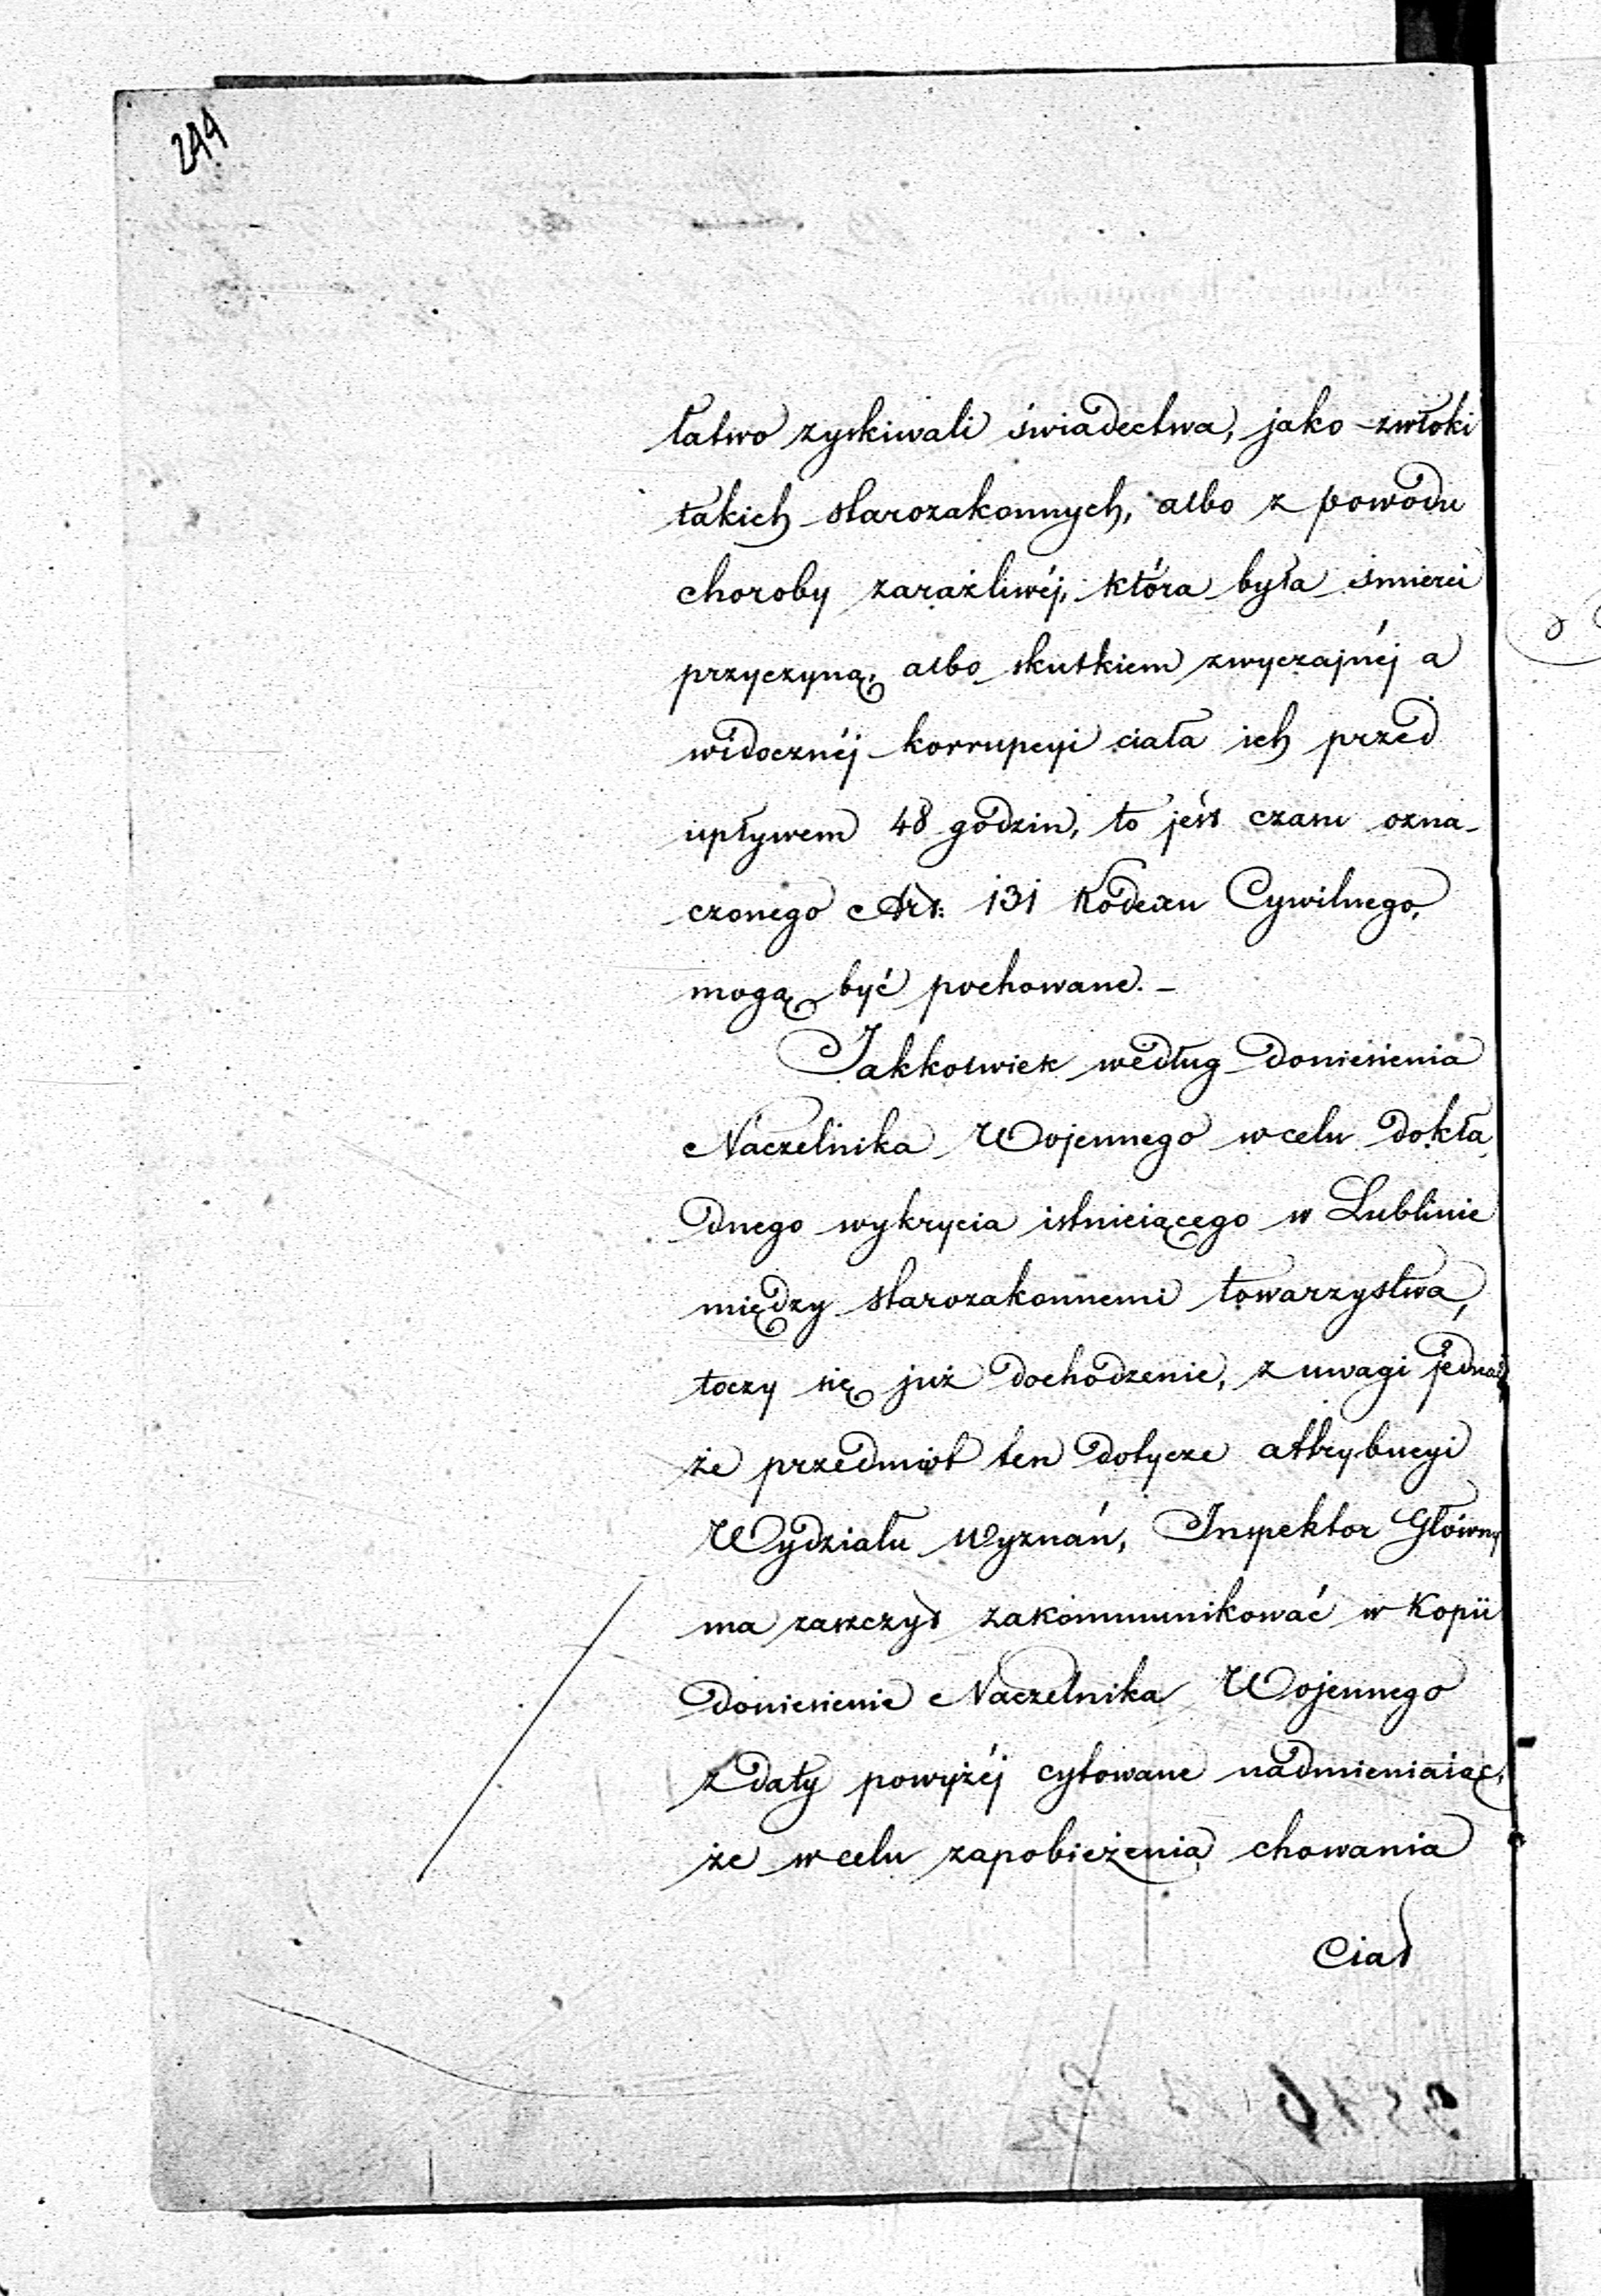 244
łatwo zyskiwali świadectwa, jako zwłoki
takich starozakonnych, albo z powodu
choroby zaraźliwéj, która była śmierci
przyczyną, albo skutkiem zwyczajnéj a
widocznéj korrupcyi ciała ich przed
upływem 48 godzin, to jest czasu ozna-
czonego Art: 131 Kodexu Cywilnego,
mogą być pochowane. -
Jakkolwiek według doniesienia
Naczelnika Wojennego w celu dokła
dnego wykrycia istnieiącego w Lublinie
między starozakonnemi towarzystwa,
toczy się już dochodzenie, z uwagi jednak
że przedmiot ten dotycze attrybucyi
Wydziału Wyznań, Inspektor Główny
ma zaszczyt zakommunikować w Kopii
doniesienie Naczelnika Wojennego
z daty powyżéj cytowane nadmieniaiąc,
że w celu zapobieżenia chowania
Ciał